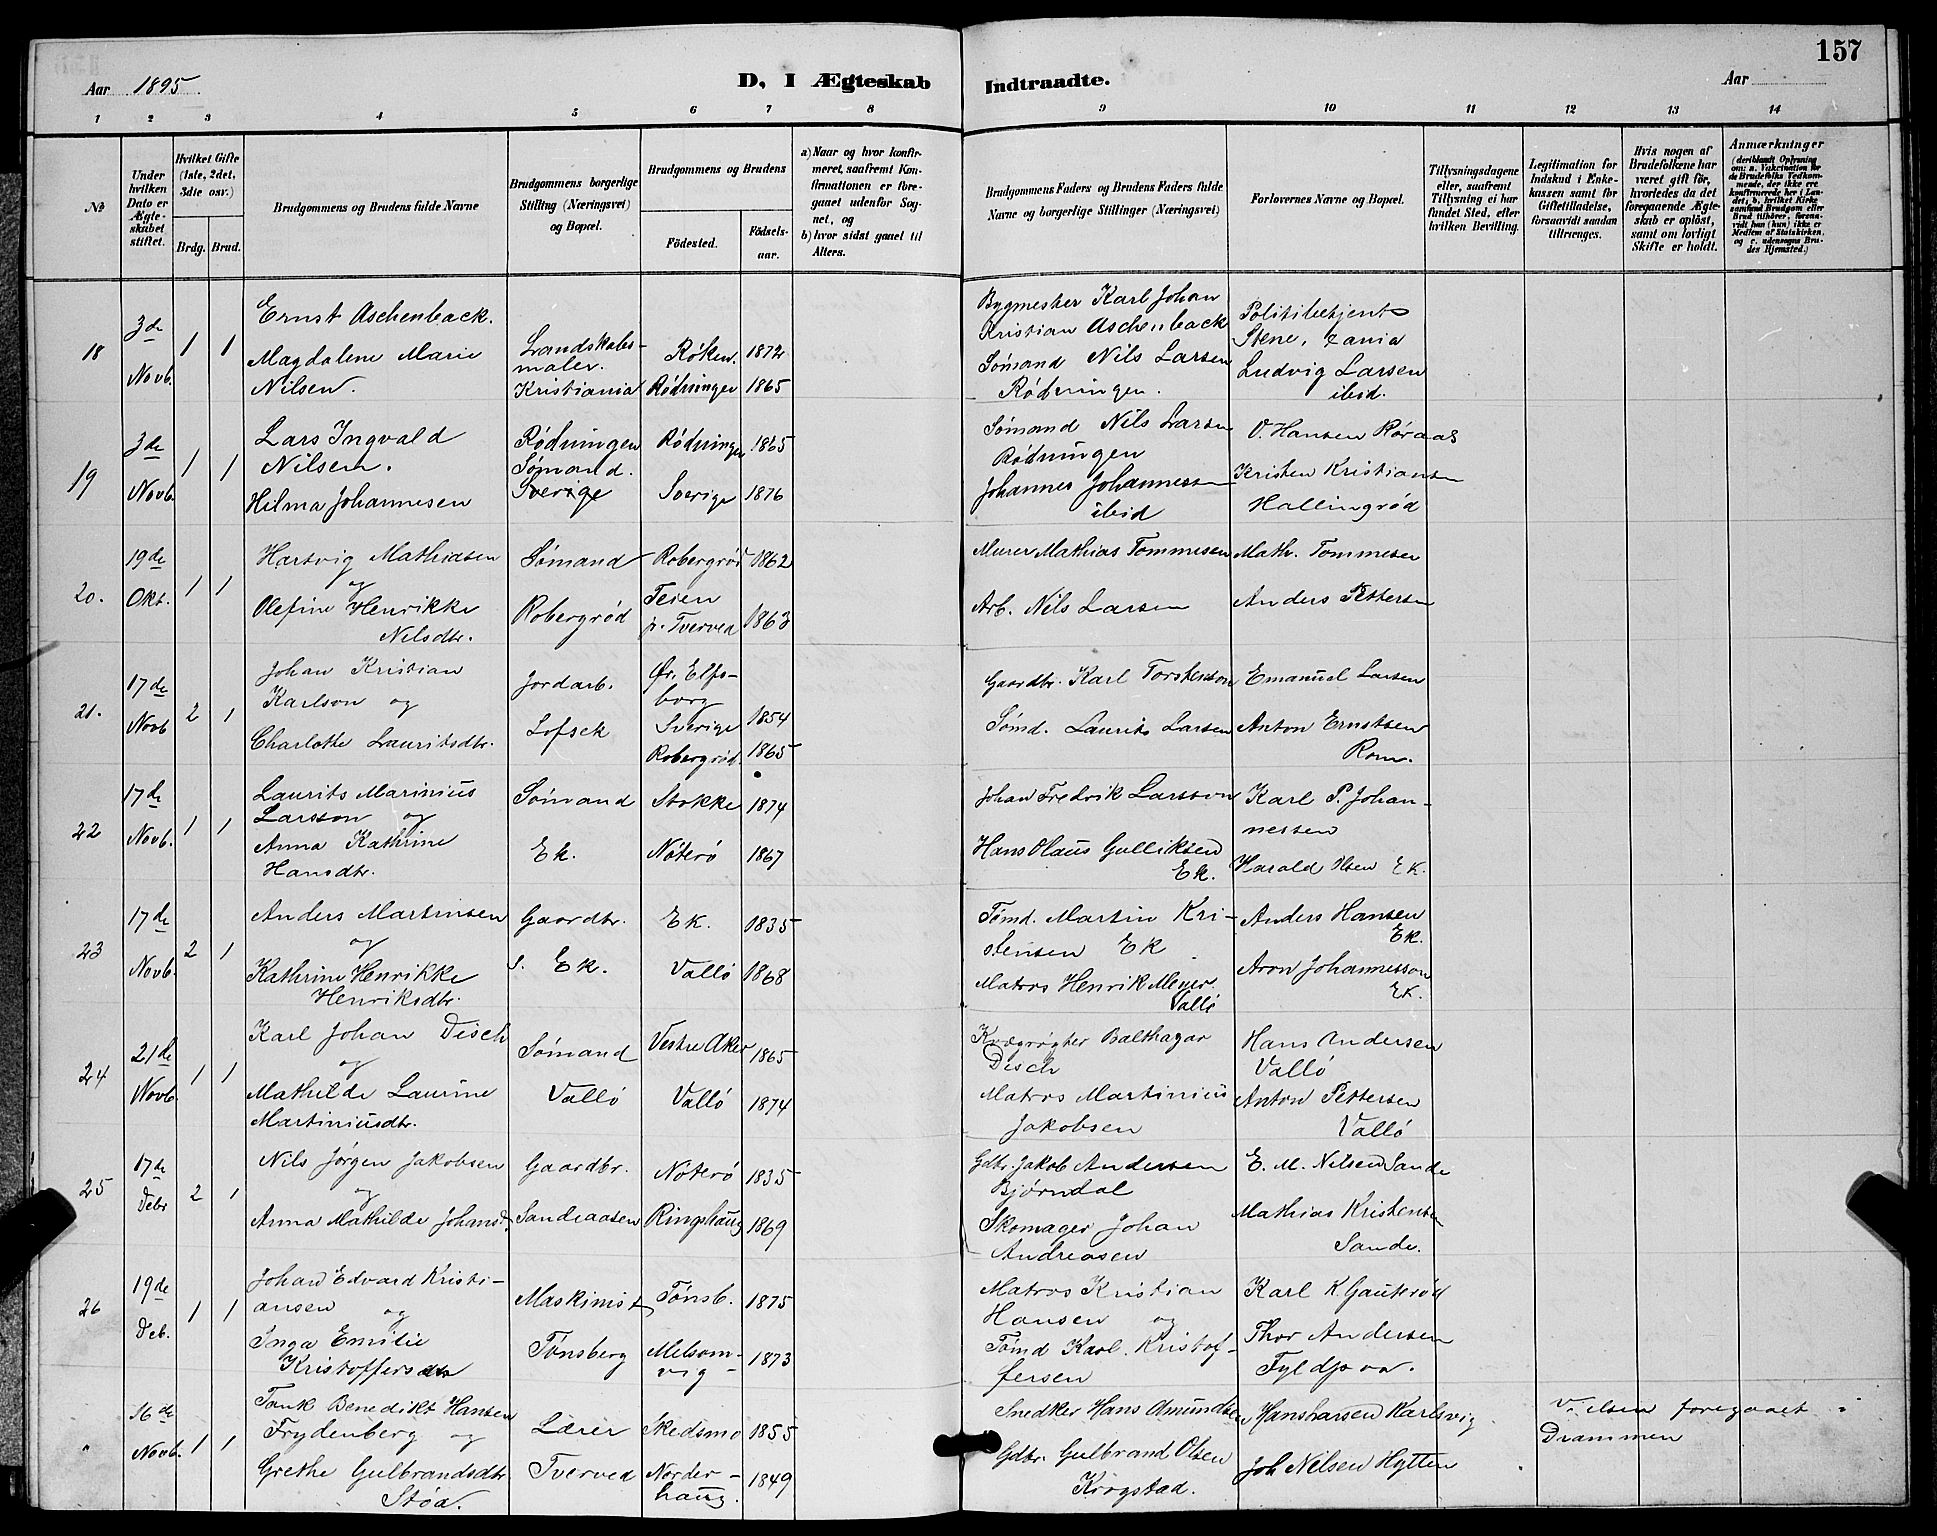 157
Aar 1895. D, I Ægteskab Indtraadte. Aar
1 2 3 4 5 6 7 8 9 10 11 12 13 14
No
Under hvilken Dato er Ægteskabet stiftet.
Hvilket Gifte (1ste, 2det, 3die osv.)
Brdg. Brud.
Brudgommens og Brudens fulde Navne
Brudgommens borgerlige Stilling (Næringsvei) og Bopæl.
Brudgommens og Brudens
Födested. Födsels-aar.
a) Naar og hvor konfirmeret, saafremt Konfirmationen er foregaaet udenfor Sognet, og
b) hvor sidst gaaet til Alters.
Brudgommens Faders og Brudens Faders fulde Navne og borgerlige Stillinger (Næringsvei)
Forlovernes Navne og Bopæl.
Tillysningsdagene eller, saafremt Tillysning ei har fundet Sted, efter hvilken Bevilling.
Legitimation for Indskud i Enkekassen samt for Giftetilladelse, forsaavidt saadan tiltrænges.
Hvis nogen af Brudefolkene har været gift för, hvorledes da det foregaaende Ægteskab er oplöst, samt om lovligt Skifte er holdt.
Anmærkninger
18 3de Novb. 1 1
Ernst Aschenback.
Magdalene Marie
Nilsen.
Landskabs-
maler.
Kristiania
Røken. 1872
Rødningen 1865
Bygmester Karl Johan
Kristian Aschenback
Sømand Nils Larsen
Rødningen.
Politibetjent
Stene,
Ludvig Larsen
ibid.
19 3de Novb. 1 1
Lars Ingvald
Nilsen.
Hilma Johannesen
Rødningen
Sømand.
Sverige
Rødningen 1865
Sverige 1876
Sømand Nils Larsen
Rødningen
Johannes Johannessen
ibid
O. Hansen Røraas
Kristen Kristiansen
Hallingrød
20. 19de Okt. 1 1
Hartvig Mathiasen
og
Olefine Henrikke
Nilsdtr.
Sømand
Robergrød
Robergrød 1862
Teien
p. Tverved 1863
Murer Mathias Tommesen
Arb. Nils Larsen
Math. Tommesen
Anders Pettersen
21. 17de Novb 2 1
Johan Kristian
Karlson og
Charlotte Lauritsdtr.
Jordarb.
Lofsek
Ør. Elfs-
borg
Sverige 1854
Robergrød. 1865
Gaardbr. Karl Torstenson
Sømd. Laurits Larsen
Emanuel Larsen
Anton Ernstsen
Rom.
22 17de Novb. 1 1
Laurits Marinius
Larsson og
Anna Kathrine
Hansdtr.
Sømand
Ek.
Stokke 1874
Nøterø 1867
Johan Fredrik Larsson
Hans Olaus Gulliksen
Ek.
Karl P. Johan-
nessen
Harald Olsen Ek.
23 17de Novb. 2 1
Anders Martinsen
og
Kathrine Henrikke
Henriksdtr.
Gaardbr.
s. Ek.
Ek. 1835
Vallø 1868
Tømd. Martin Kri-
stensen Ek
Matros Henrik Meyer.
Vallø
Anders Hansen
Ek.
Aron Johannesson
Ek.
24 21de Novb. 1 1
Karl Johan Disch
og
Mathilde Laurine
Martiniusdtr.
Sømand
Vallø
Vestre Aker 1865
Vallø 1874
Kvægrøgter Balthazar
Disch
Matros Martinius
Jakobsen
Hans Andersen
Vallø
Anton Pettersen
Vallø
25 17de Debr 2 1
Nils Jørgen Jakobsen
og
Anna Mathilde Johansd.
Gaardbr.
Sandeaasen
Nøterø 1835
Ringshaug 1869
Gdbr. Jakob Andersen
Bjørndal
Skomager Johan
Andreasen
E. M. Nilsen Sande
Mathias Kristensen
Sande.
26 19de Deb. 1 1
Johan Edvard Kristi-
ansen og
Inga Emilie
Kristoffersdtr
Maskinist
Tønsberg
Tønsb. 1875
Melsom-
vig 1873
Matros Kristian
Hansen og
Tømd Karl. Kristof-
fersen
Karl K. Gauterød
Thor Andersen
Fyldpaa.
" 16de Novb. 1 1
Tank Benedikt Hansen
Frydenberg og
Grethe Gulbrandsdtr
Støa.
Lærer
Tverved
Skedsmo 1855
Norder-
haug. 1849
Snedker Hans Amundsen
Gdbr. Gulbrand Olsen
Krogstad.
Hans Larsen Karlsvig
Joh Nilsen Hytten
Vielsen foregaaet i
Drammen